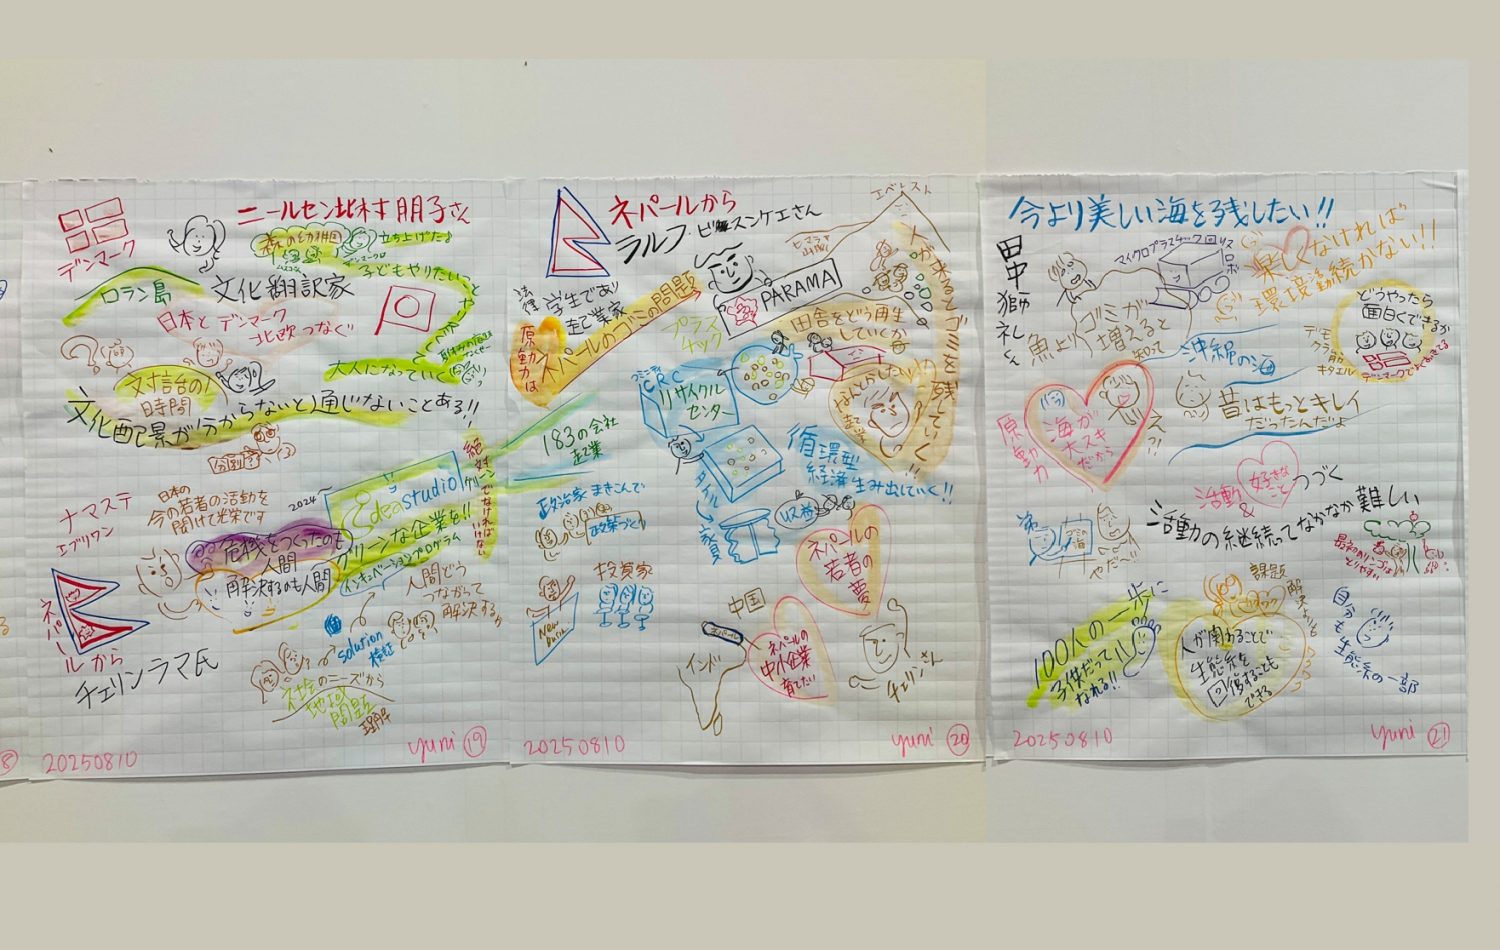 デンマーク
ニールセン北村朋子さん
森の幼稚園
立ち上げた♪
ロラン島
文化翻訳家
子どもやりたいことやって
日本とデンマーク
北欧つなぐ
大人になっていく
対話の
時間
文化背景が分からないと通じないことある!!
ナマステ
エブリワン
日本の
今の若者の活動を
聞けて光栄です
2024〜
idea studio
絶対グリーンでなければいけない
グリーンな企業を!!
インキュベーションプログラム
危機をつくったのも
人間
解決するのも人間
人間どう
つながって
解決するか
solution
検証
社会のニーズから
地域
問題
理解
ネパールから
チェリンラマ氏
20250810
yuni 19
ネパールから
ラルフ・ビスンケエさん
エベレスト
ヒマラヤ
山脈
法律
学生であり
起業家
原動力は
ネパールのゴミの問題
PARAMA
プラスチック
田舎をどう再生
していくか
人が来るとゴミを残していく!!
なんとかしたい
起業
コミュニティ
CRC
リサイクル
センター
183の会社
起業
循環型
経済生み出していく!!
タイル
家具
政治家まきこんで
政策づくり
投資家
ネパールの
若者の
夢
中国
ネパール
インド
ネパールの
中小企業
育てたい
チェリンさん
20250810
yuni 20
今より美しい海を残したい!!
田中
マイクロプラスチック回収ロボ
楽しくなければ
環境活動続かない!!
魚より
ゴミが
増えると
知って
えっ!
沖縄の海
昔はもっとキレイ
だったんだよ
どうやったら
面白くできるか
デンマークで
原動力
海が
大スキ
だから
活動
&
好きな
こと
つづく
活動の継続ってなかなか難しい
やだ〜
100人の一歩に
子供だって
なれる!!
課題
人が関わることで
生態系を
回復することも
できる
自分も生態系の一部
20250810
yuni 21